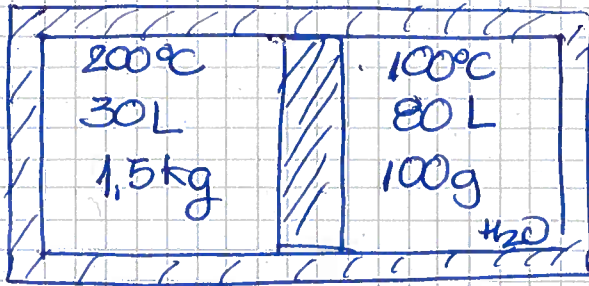 200°C
30L
1,5kg
100°C
80 L
100g
H2O